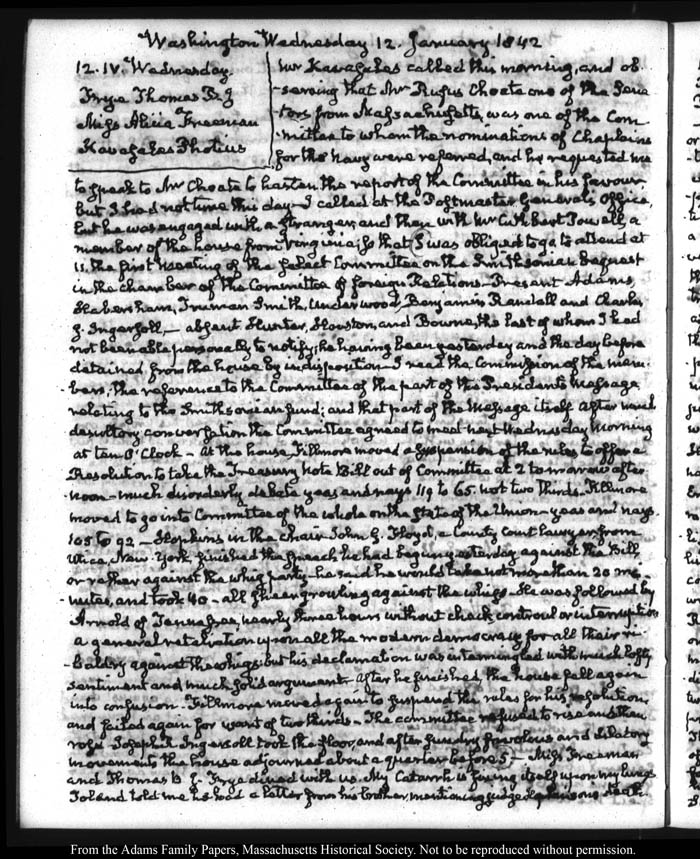 Washington Wednesday 12. January 1842
12. IV. Wednesday.
Frye Thomas B. J
Miss Alicia Freeman
Kavasales Photius
Mr Kavasales called this morning, and ob
-serving that Mr Rufus Choate one of the Sena
-tors from Massachusetts, was one of the Com
-mittee to whom the nominations of Chaplains
for the Navy were referred, and he requested me
to speak to Mr Choate to hasten the report of the Committee in his favour
but I had not time this day. I called at the Postmaster General's Office,
but he was engaged with a stranger, and then with Mr Cuthbert Powell, a
member of the house from Virginia; so that I was obliged to go to attend at
11. the first meeting of the Select Committee on the Smithsonian bequest
in the chamber of the Committee of foreign Relations. Present Adams,
Habersham, Truman Smith, Underwood, Benjamin Randall and Charles
J. Ingersoll, — absent Hunter, Houston, and Bowne, the last of whom I had
not been able personally to notify; he having been yesterday and the day before
detained from the house by indisposition. I read the Commission of the mem
-bers; the reference to the Committee of the part of the President's Message
relating to the Smithsonian fund; and that part of the Message itself. After much
desultory conversation the Committee agreed to meet next Wednesday Morning
at ten O'Clock — At the house, Fillmore moved a suspension of the rules to offer a
Resolution to take the Treasury Note Bill out of Committee at 2 to-morrow after
-noon — much disorderly debate yeas and nays 119 to 65. not two thirds. Fillmore
moved to go into Committee of the whole on the State of the Union — yeas and nays
105 to 92 — Hopkins in the Chair John G. Floyd, a County Court lawyer from
Utica, New-York, finished the Speech, he had begun yesterday against the Bill,
or rather against the whig party — he said he would take not more than 20 mi
-nutes, and took 40 — all sheer growling against the whigs — He was followed by
Arnold of Tennessee, nearly three hours without check, controul or interruption
a general retaliation upon all the modern democracy for all their ri
-baldry against the whigs: but his declamation was intermingled with much lofty
sentiment and much solid argument — After he finished, the house fell again
into confusion. Fillmore moved again to suspend the rules for his resolution,
and failed again for want of two thirds — The committee refused to rise and then
rose. Joseph R. Ingersoll took the floor, and after sundry frivolous and dilatory
movements the house adjourned about a quarter before 5 — Miss Freeman
and Thomas B. J. Frye dined with us. My Catarrh is fixing itself upon my lungs
told me he had a letter from his brother, mentioning judge death.
From the Adams Family Papers, Massachusetts Historical Society. Not to be reproduced without permission.